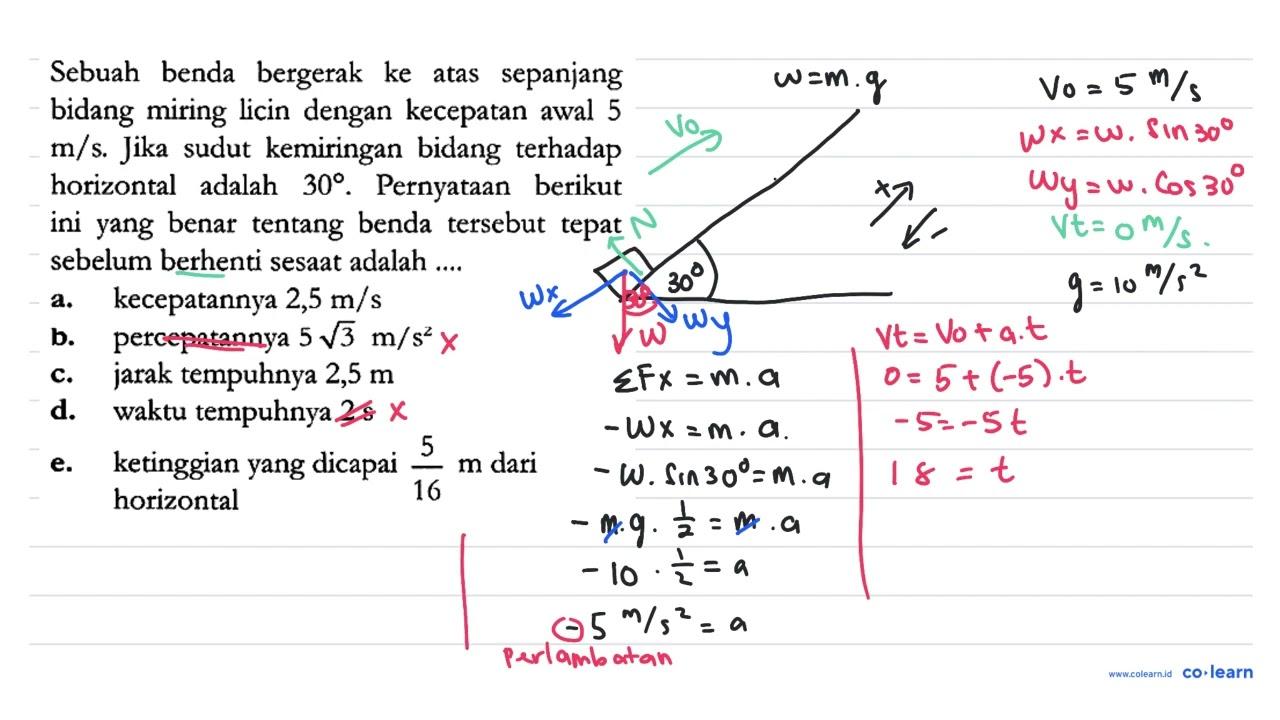 Sebuah benda bergerak ke atas sepanjang
bidang miring licin dengan kecepatan awal 5
m/s. Jika sudut kemiringan bidang terhadap
horizontal adalah 30°. Pernyataan berikut
ini yang benar tentang benda tersebut tepat
sebelum berhenti sesaat adalah ....
a. kecepatannya 2,5 m/s
b. percepatannya 5 √3 m/s² x
c. jarak tempuhnya 2,5 m
d. waktu tempuhnya 2 s x
e. ketinggian yang dicapai 5/16 m dari
horizontal
w = m . g
Vo
N
30°
Wx
30°
W
Wy
x
-
Vo = 5 m/s
Wx = w. Sin 30°
Wy = w. Cos 30°
Vt = 0 m/s.
g = 10 m/s²
ΣFx = m . a
- Wx = m . a.
- W. Sin 30° = m . a
- m.g . 1/2 = m . a
- 10 . 1/2 = a
- 5 m/s² = a
Perlambatan
Vt = Vo + a.t
0 = 5 + (-5) . t
-5 = -5 t
1 s = t
www.colearn.id co•learn